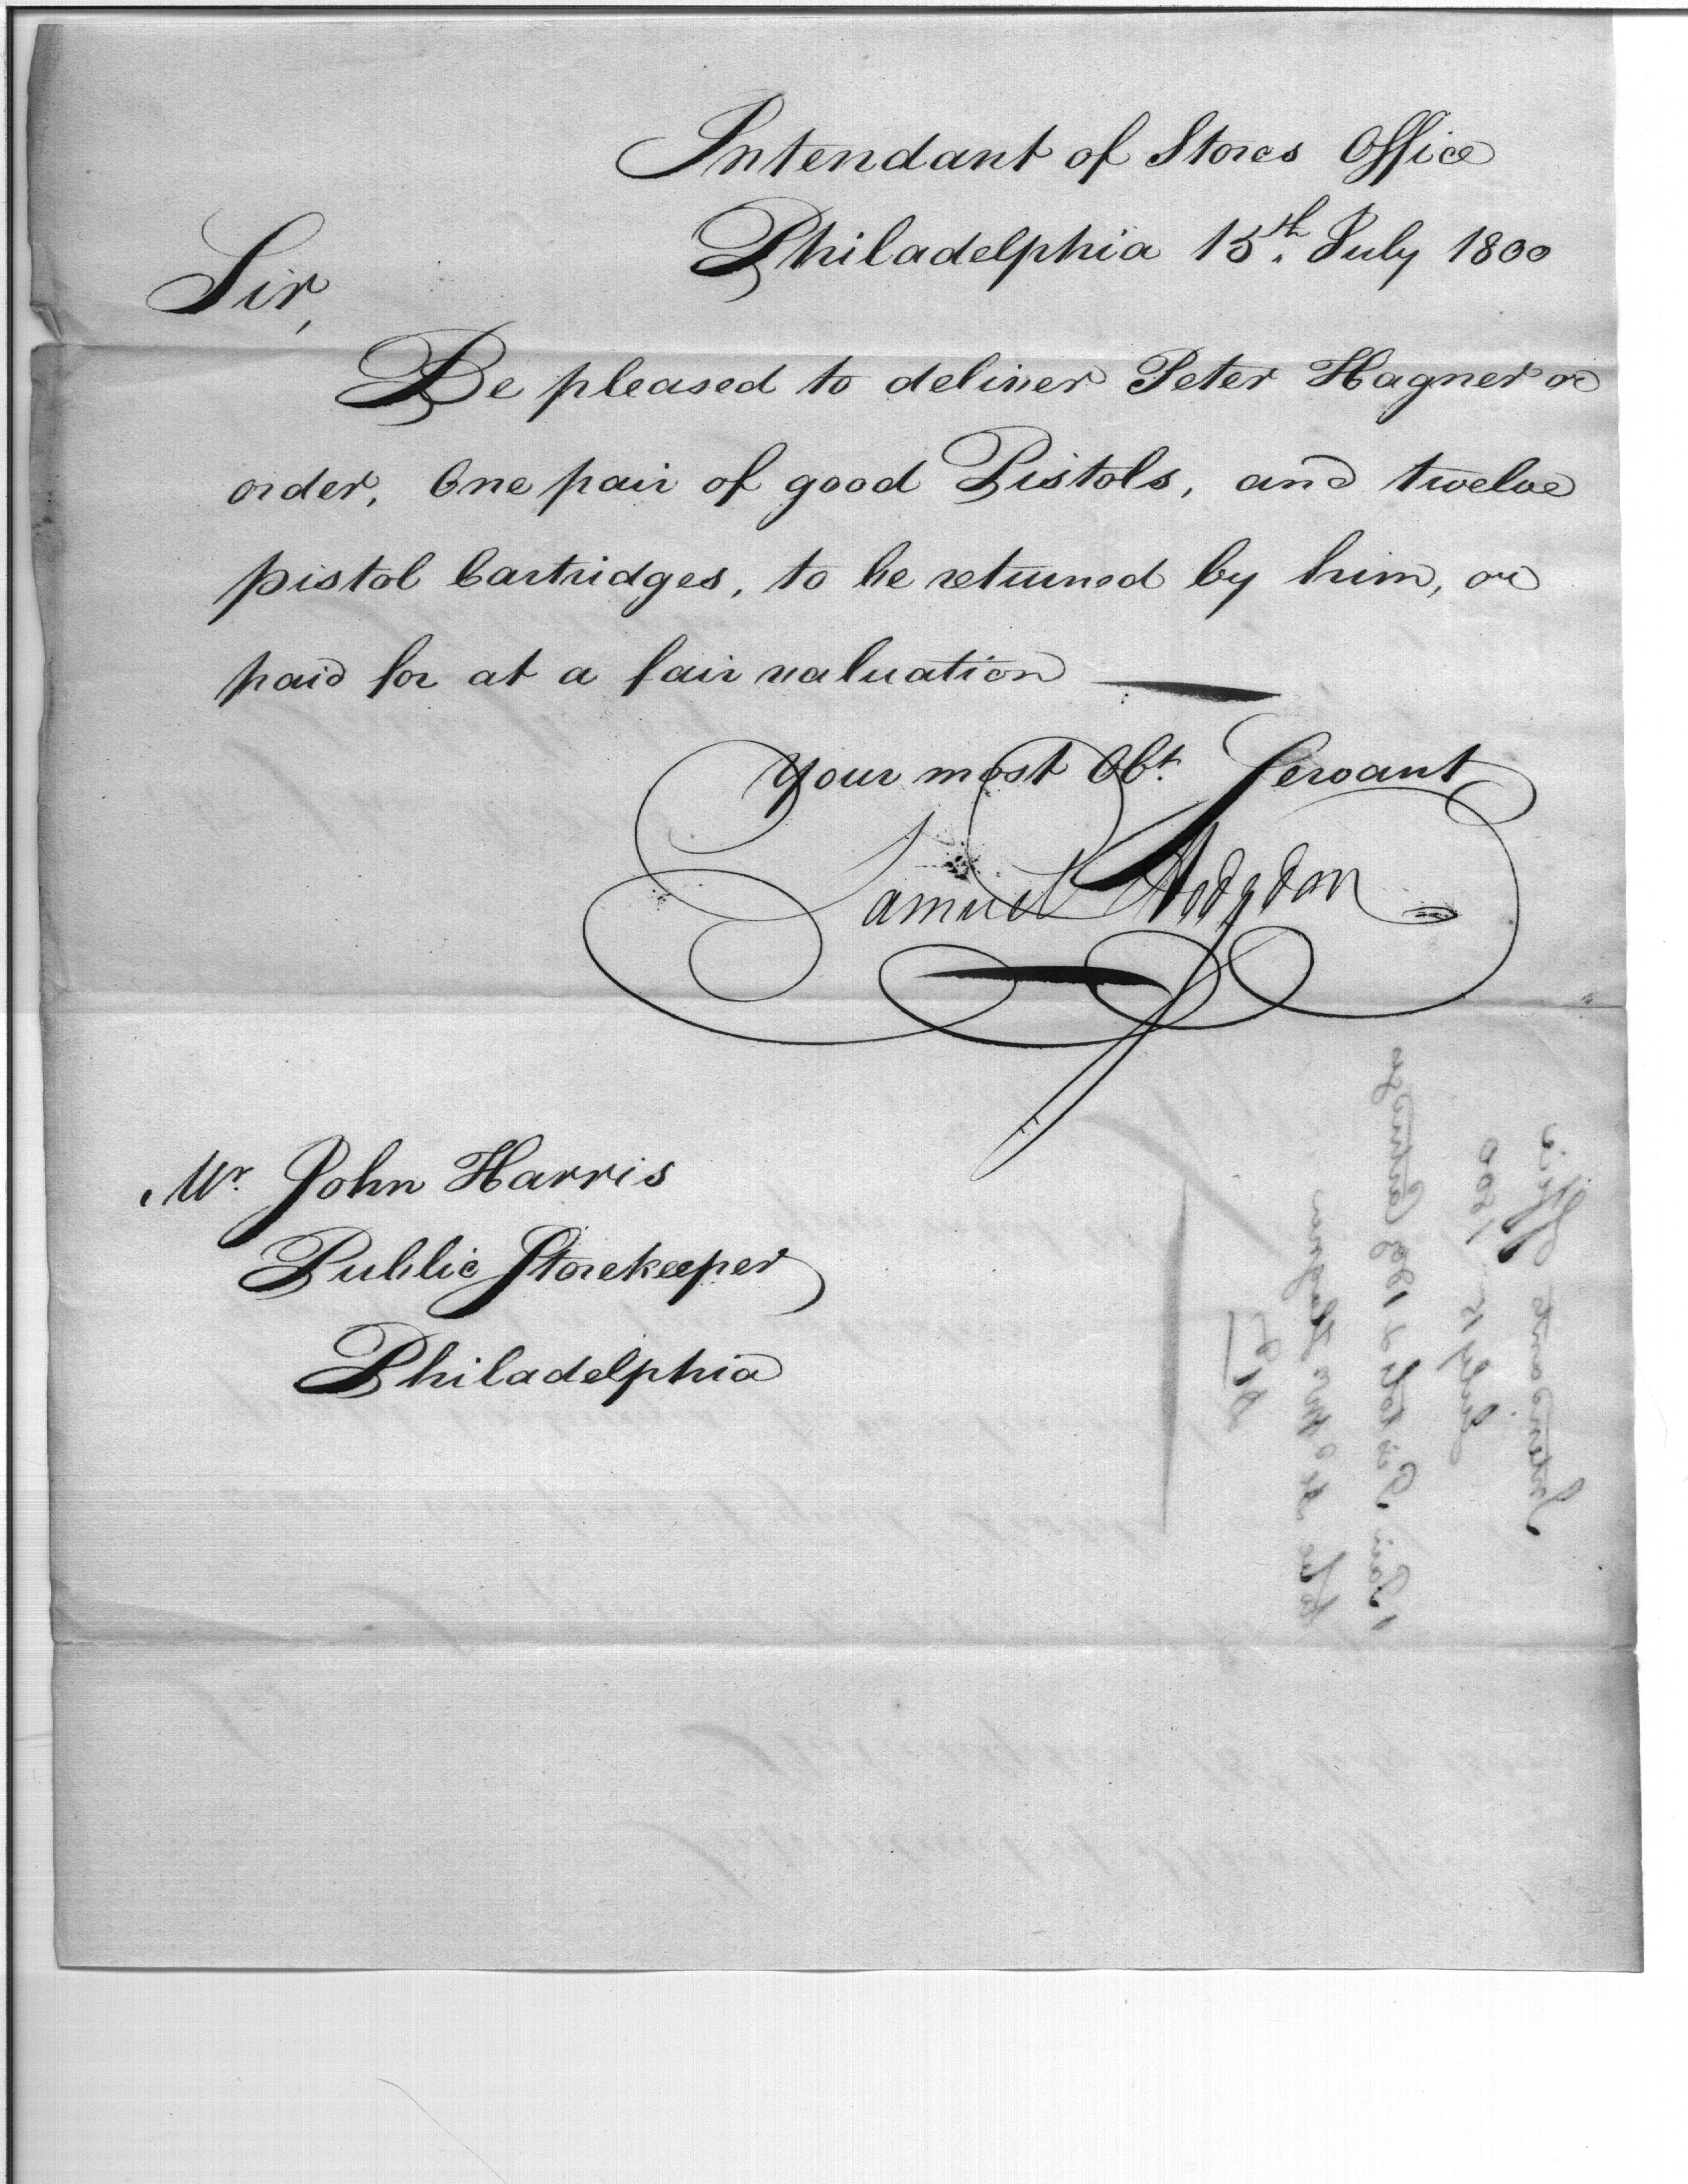 Intendant of Stores Office
Philadelphia 15th. July 1800
Sir,
Be pleased to deliver Peter Hagner or
order, One pair of good Pistols, and twelve
pistol Cartridges, to be returned by him, or
paid for at a fair valuation
Your most Obt. Servant
Samuel Hodgdon
Mr. John Harris
Public Storekeeper
Philadelphia
Intendants Office
July 15th 1800
1 Pair Pistols & 12 Cartridges